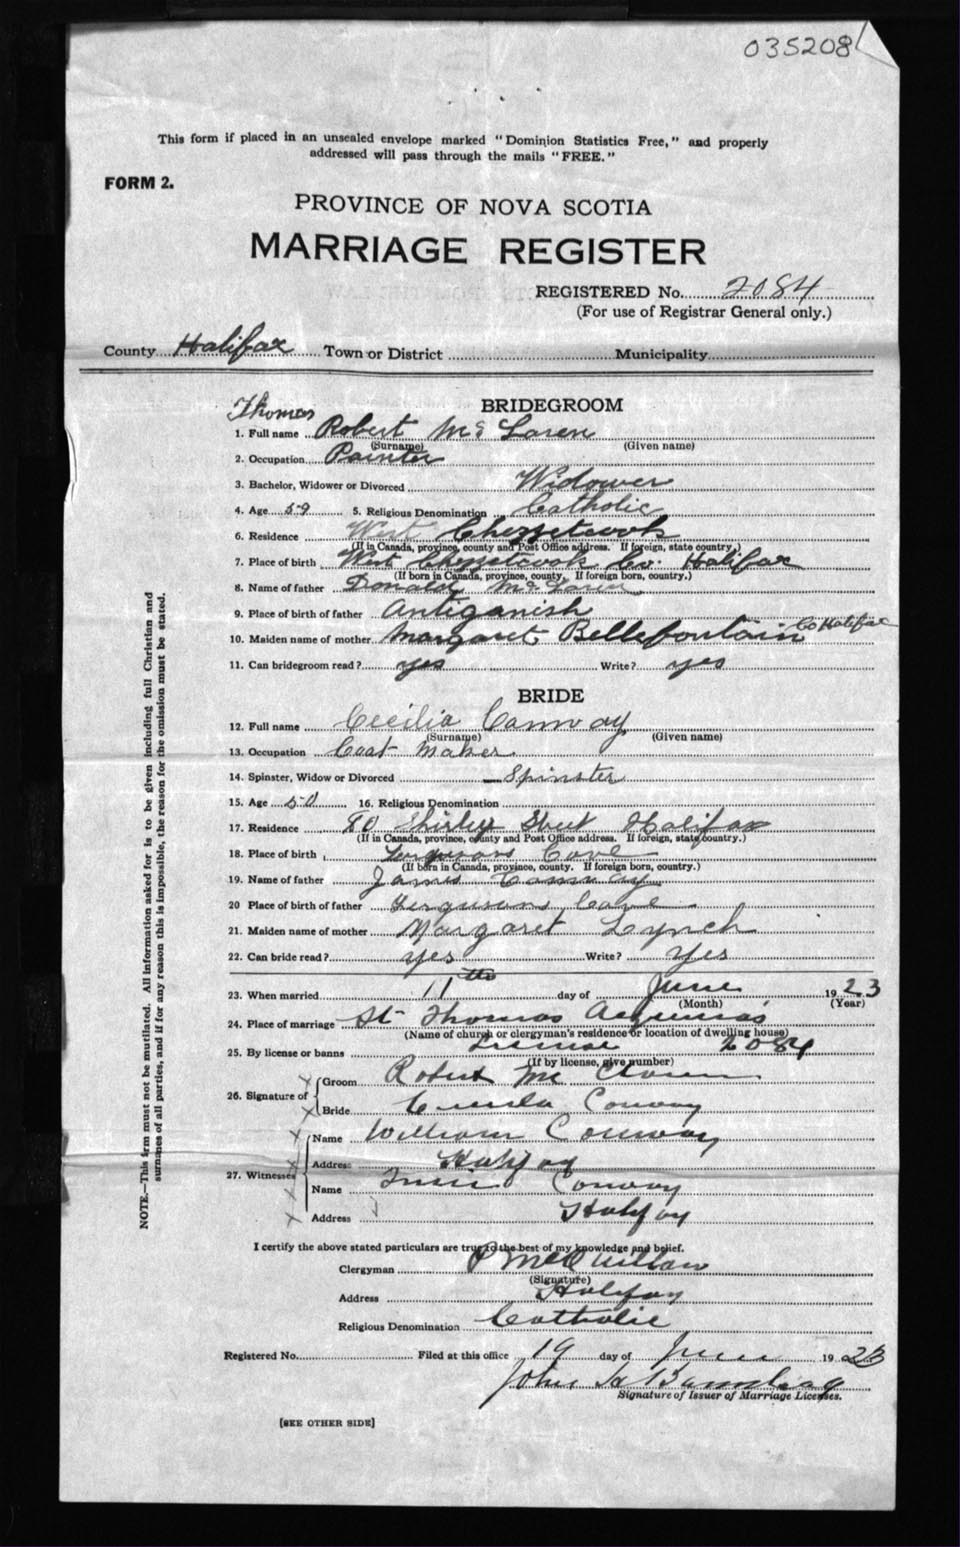 035208
This form if placed in an unsealed envelope marked "Dominion Statistics Free," and properly
addressed will pass through the mails "FREE."
FORM 2.
PROVINCE OF NOVA SCOTIA
MARRIAGE REGISTER
REGISTERED No. 2084
(For use of Registrar General only.)
County Halifax Town or District Municipality
BRIDEGROOM
Thomas
1. Full name Robert Mc Laren
(Surname) (Given name)
2. Occupation Painter
3. Bachelor, Widower or Divorced Widower
4. Age 59 5. Religious Denomination Catholic
6. Residence West Chezzetcook
(If in Canada, province, county and Post Office address. If foreign, state country.)
7. Place of birth West Chezzetcook Co. Halifax
(If born in Canada, province, county. If foreign born, country.)
8. Name of father Donald Mc Laren
9. Place of birth of father Antiganish
10. Maiden name of mother Margaret Bellefontain Co Halifax
11. Can bridegroom read? yes Write? yes
BRIDE
12. Full name Cecilia Conway
(Surname) (Given name)
13. Occupation Coat Maker
14. Spinster, Widow or Divorced Spinster
15. Age 50 16. Religious Denomination
17. Residence 80 Shirley Street Halifax
(If in Canada, province, county and Post Office address. If foreign, state country.)
18. Place of birth Fergusons Cove
(If born in Canada, province, county. If foreign born, country.)
19. Name of father James Conway
20 Place of birth of father Fergusons Cove
21. Maiden name of mother Margaret Lynch
22. Can bride read? yes Write? Yes
23. When married 11th day of June 1923
(Month) (Year)
24. Place of marriage St Thomas Aquinas
(Name of church or clergyman's residence or location of dwelling house)
25. By license or banns License 2084
(If by license, give number)
26. Signature of Groom Robert Mc Claren
Bride Conway
27. Witnesses Name William Conway
Address Halifax
Name Conway
Address Halifax
I certify the above stated particulars are true to the best of my knowledge and belief.
Clergyman P McQuillan
(Signature)
Address Halifax
Religious Denomination Catholic
Registered No. Filed at this office 19 day of June 1923
John
Signature of Issuer of Marriage Licenses.
[SEE OTHER SIDE]
NOTE.—This form must not be mutilated. All information asked for is to be given including full Christian and
surnames of all parties, and if for any reason this is impossible, the reason for the omission must be stated.